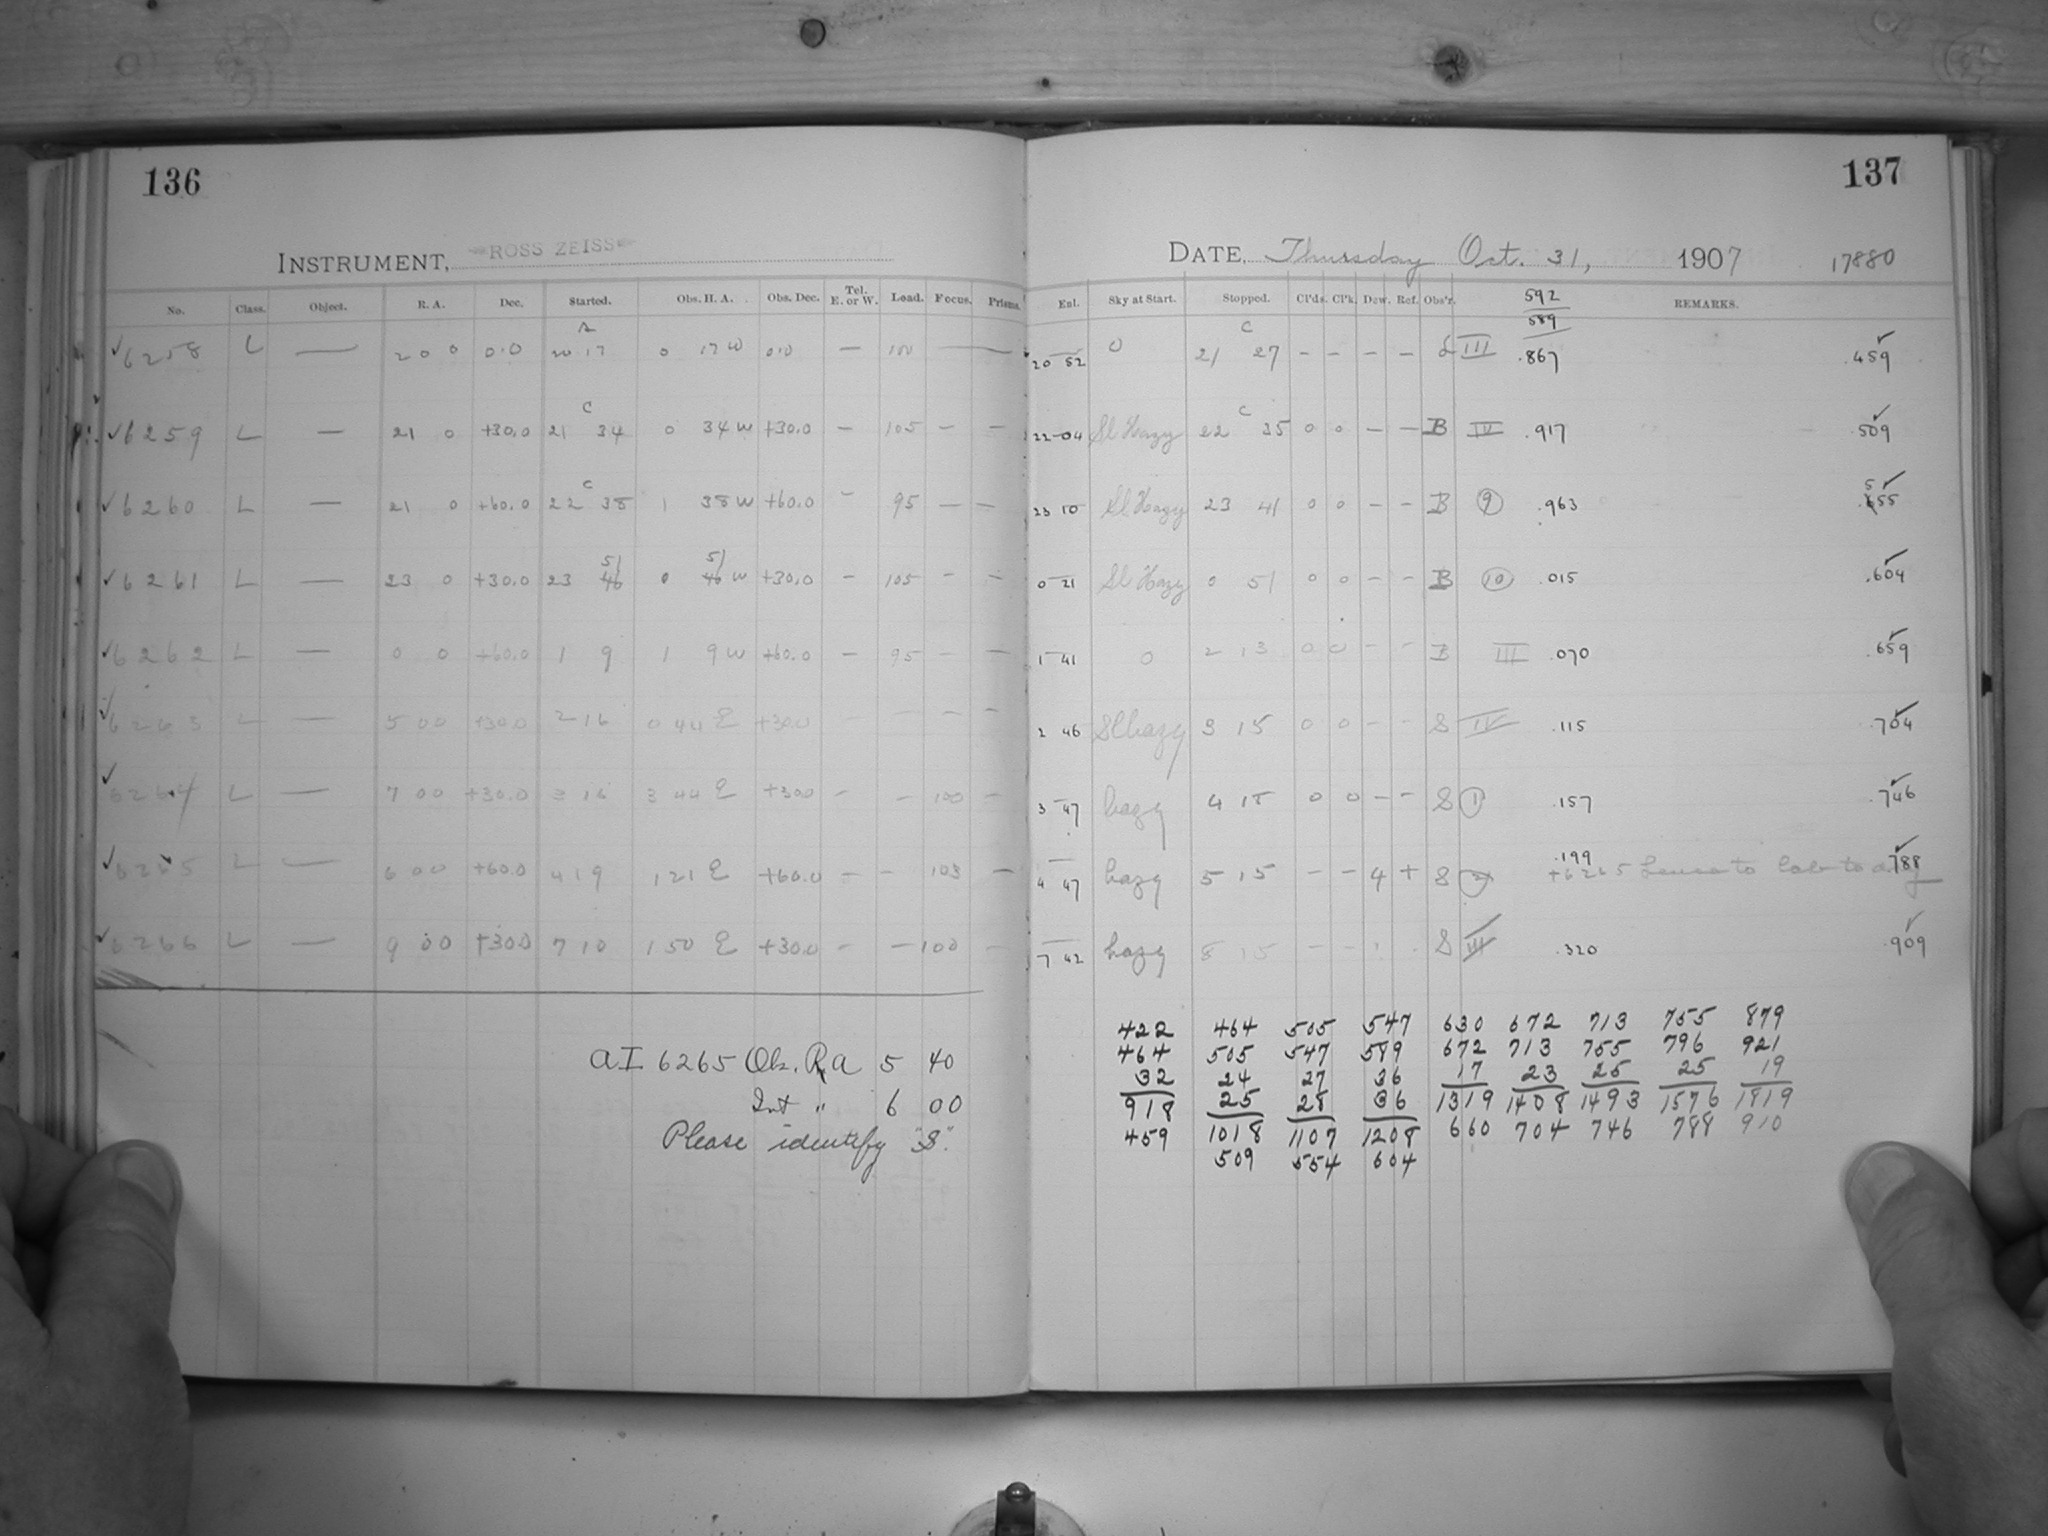 136
INSTRUMENT, ROSS ZEISS
No. Class. Object. R. A. Dec. Started. Obs. H. A. Obs. Dec. Tel. E. or W. Load. Focus. Prisms.
A
✓6258 L — 20 0 0.0 20 17 0 17 W 0.0 — 100 —
C
✓6259 L — 21 0 +30.0 21 34 0 34 W +30.0 — 105 — —
C
✓6260 L — 21 0 +60.0 22 38 1 38 W +60.0 — 95 — —
51 51
✓6261 L — 23 0 +30.0 23 46 0 46 W +30.0 — 105 — —
✓6262 L — 0 0 +60.0 1 9 1 9 W +60.0 — 95 — —
✓6263 L — 5 00 +30.0 2 16 0 44 E +30.0 — — — —
✓6264 L — 7 00 +30.0 3 16 3 44 E +30.0 — — 100 —
✓6265 L — 6 00 +60.0 4 19 1 21 E +60.0 — — 103 —
✓6266 L — 9 00 +30.0 7 10 1 50 E +30.0 — — 100 —
AI 6265 Ob. R.A 5 40
Int " 6 00
Please identify "S".
137
DATE, Thursday Oct. 31, 1907 17880
Enl. Sky at Start. Stopped. Cl'ds. Cl'k. Dew. Ref. Obs'r. REMARKS.
592
589
C
20 52 0 21 27 — — — — III .867 .459 ✓
C
22-04 Sl Hazy 22 35 0 0 — — B IV .917 .509 ✓
5 ✓
23 10 Sl Hazy 23 41 0 0 — — B 9 .963 .655
0 21 Sl Hazy 0 51 0 0 — — B 10 .015 .604 ✓
1 41 0 2 13 0 0 — — B III .070 .659 ✓
2 46 Sl hazy 3 15 0 0 — — S IV .115 .704 ✓
3 47 hazy 4 15 0 0 — — S 1 .157 .746 ✓
.199 .788 ✓
4 47 hazy 5 15 — — 4 + S 2 +6265
7 42 hazy 8 15 — — S III .320 .909 ✓
422 464 505 547 630 672 713 755 879
464 505 547 589 672 713 755 796 921
32 24 27 36 17 23 25 25 19
918 25 28 36 1319 1408 1493 1576 1819
459 1018 1107 1208 660 704 746 788 910
509 554 604